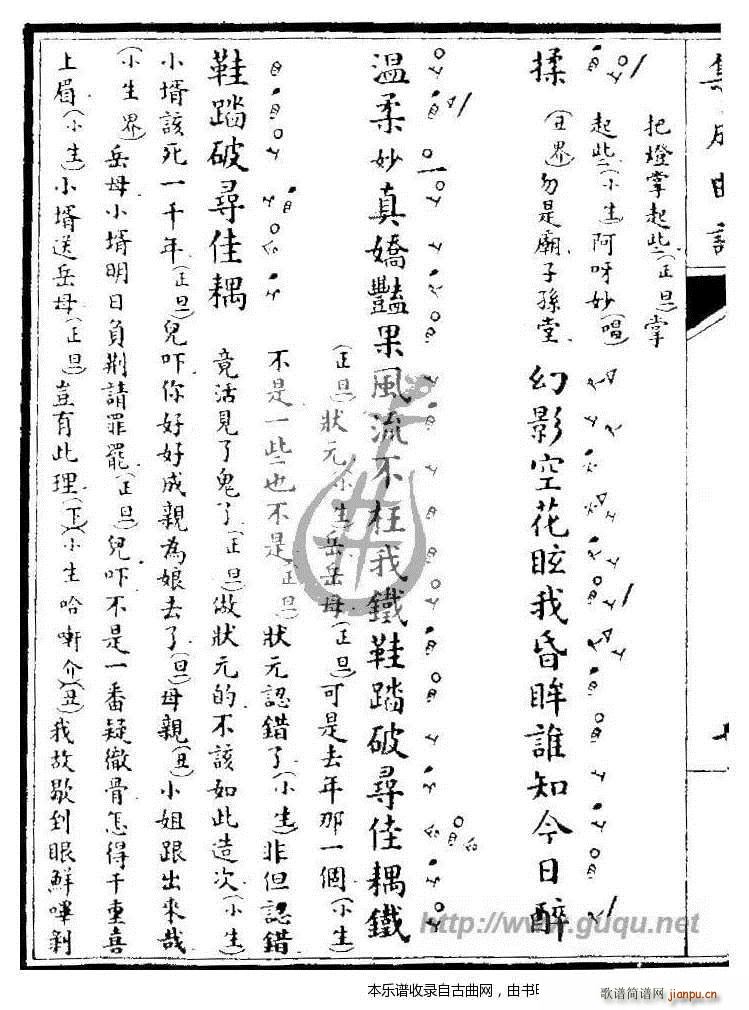 集成曲譜
把燈掌起些(正旦)掌
起些(小生)阿呀妙(唱)
揉
(丑界)勿是廟子孫堂
幻影空花眩我昏眸誰知今日醉
溫柔妙真嬌豔果風流不枉我鐵鞋踏破尋佳耦鐵
(正旦)狀元(小生)岳岳母(正旦)可是去年那一個(小生)
不是一些也不是(正旦)狀元認錯了(小生)非但認錯
鞋踏破尋佳耦
竟活見了鬼了(正旦)做狀元的不該如此造次(小生)
小壻該死一千年(正旦)兒吓你好好成親為娘去了(旦)母親(丑)小姐跟出來哉
(小生界)岳母小壻明日負荆請罪罷(正旦)兒吓不是一番疑徹骨怎得千重喜
上眉(小生)小壻送岳母(正旦)豈有此理(下)(小生哈嘶介)(丑)我故歇到眼鮮嗶剝
http://www.guqu.net
本乐谱收录自古曲网，由书
歌谱简谱网
jianpu.cn